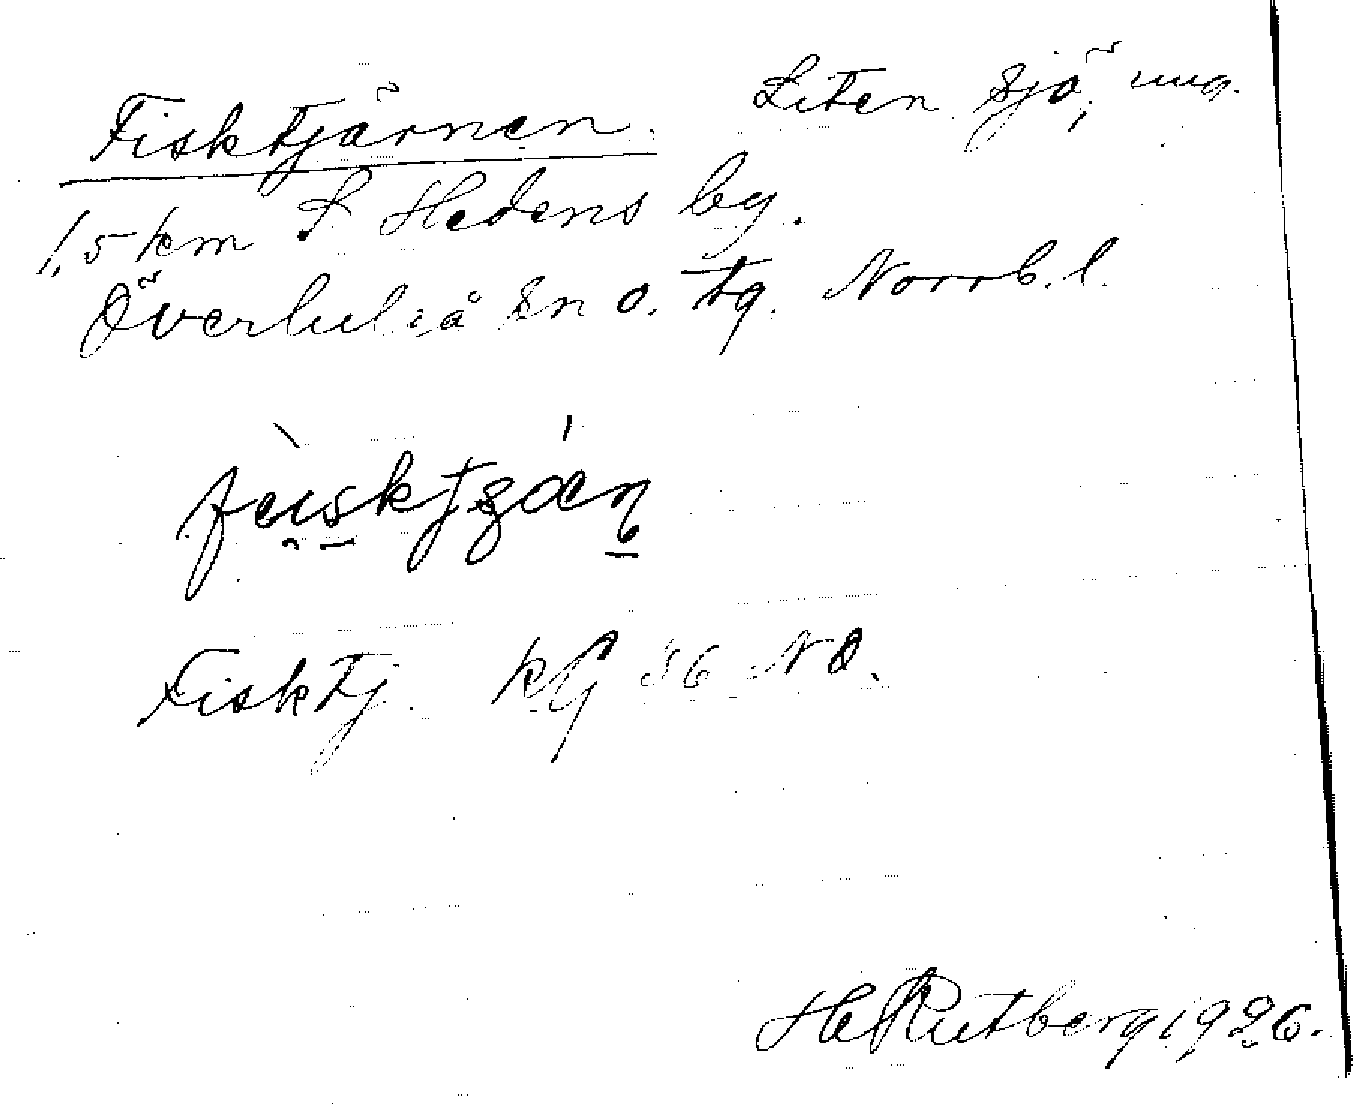 Fisktjärnen. Liten sjö, ung.
1,5 km S Hedens by.
Överluleå sn o. tg. Norrb. l.
Fisktj. kG 36 NO.
H Rutberg 1926.